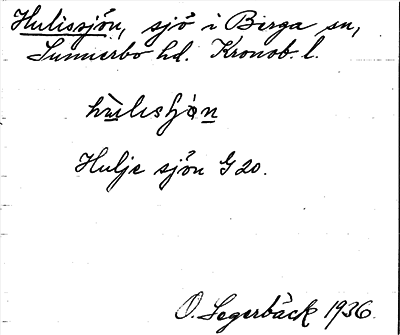 Hulissjön, sjö i Berga sn,
Sunnerbo hd. Kronob. l.
hùlisjòn
Hulje sjön G 20.
O. Segerbäck 1936.